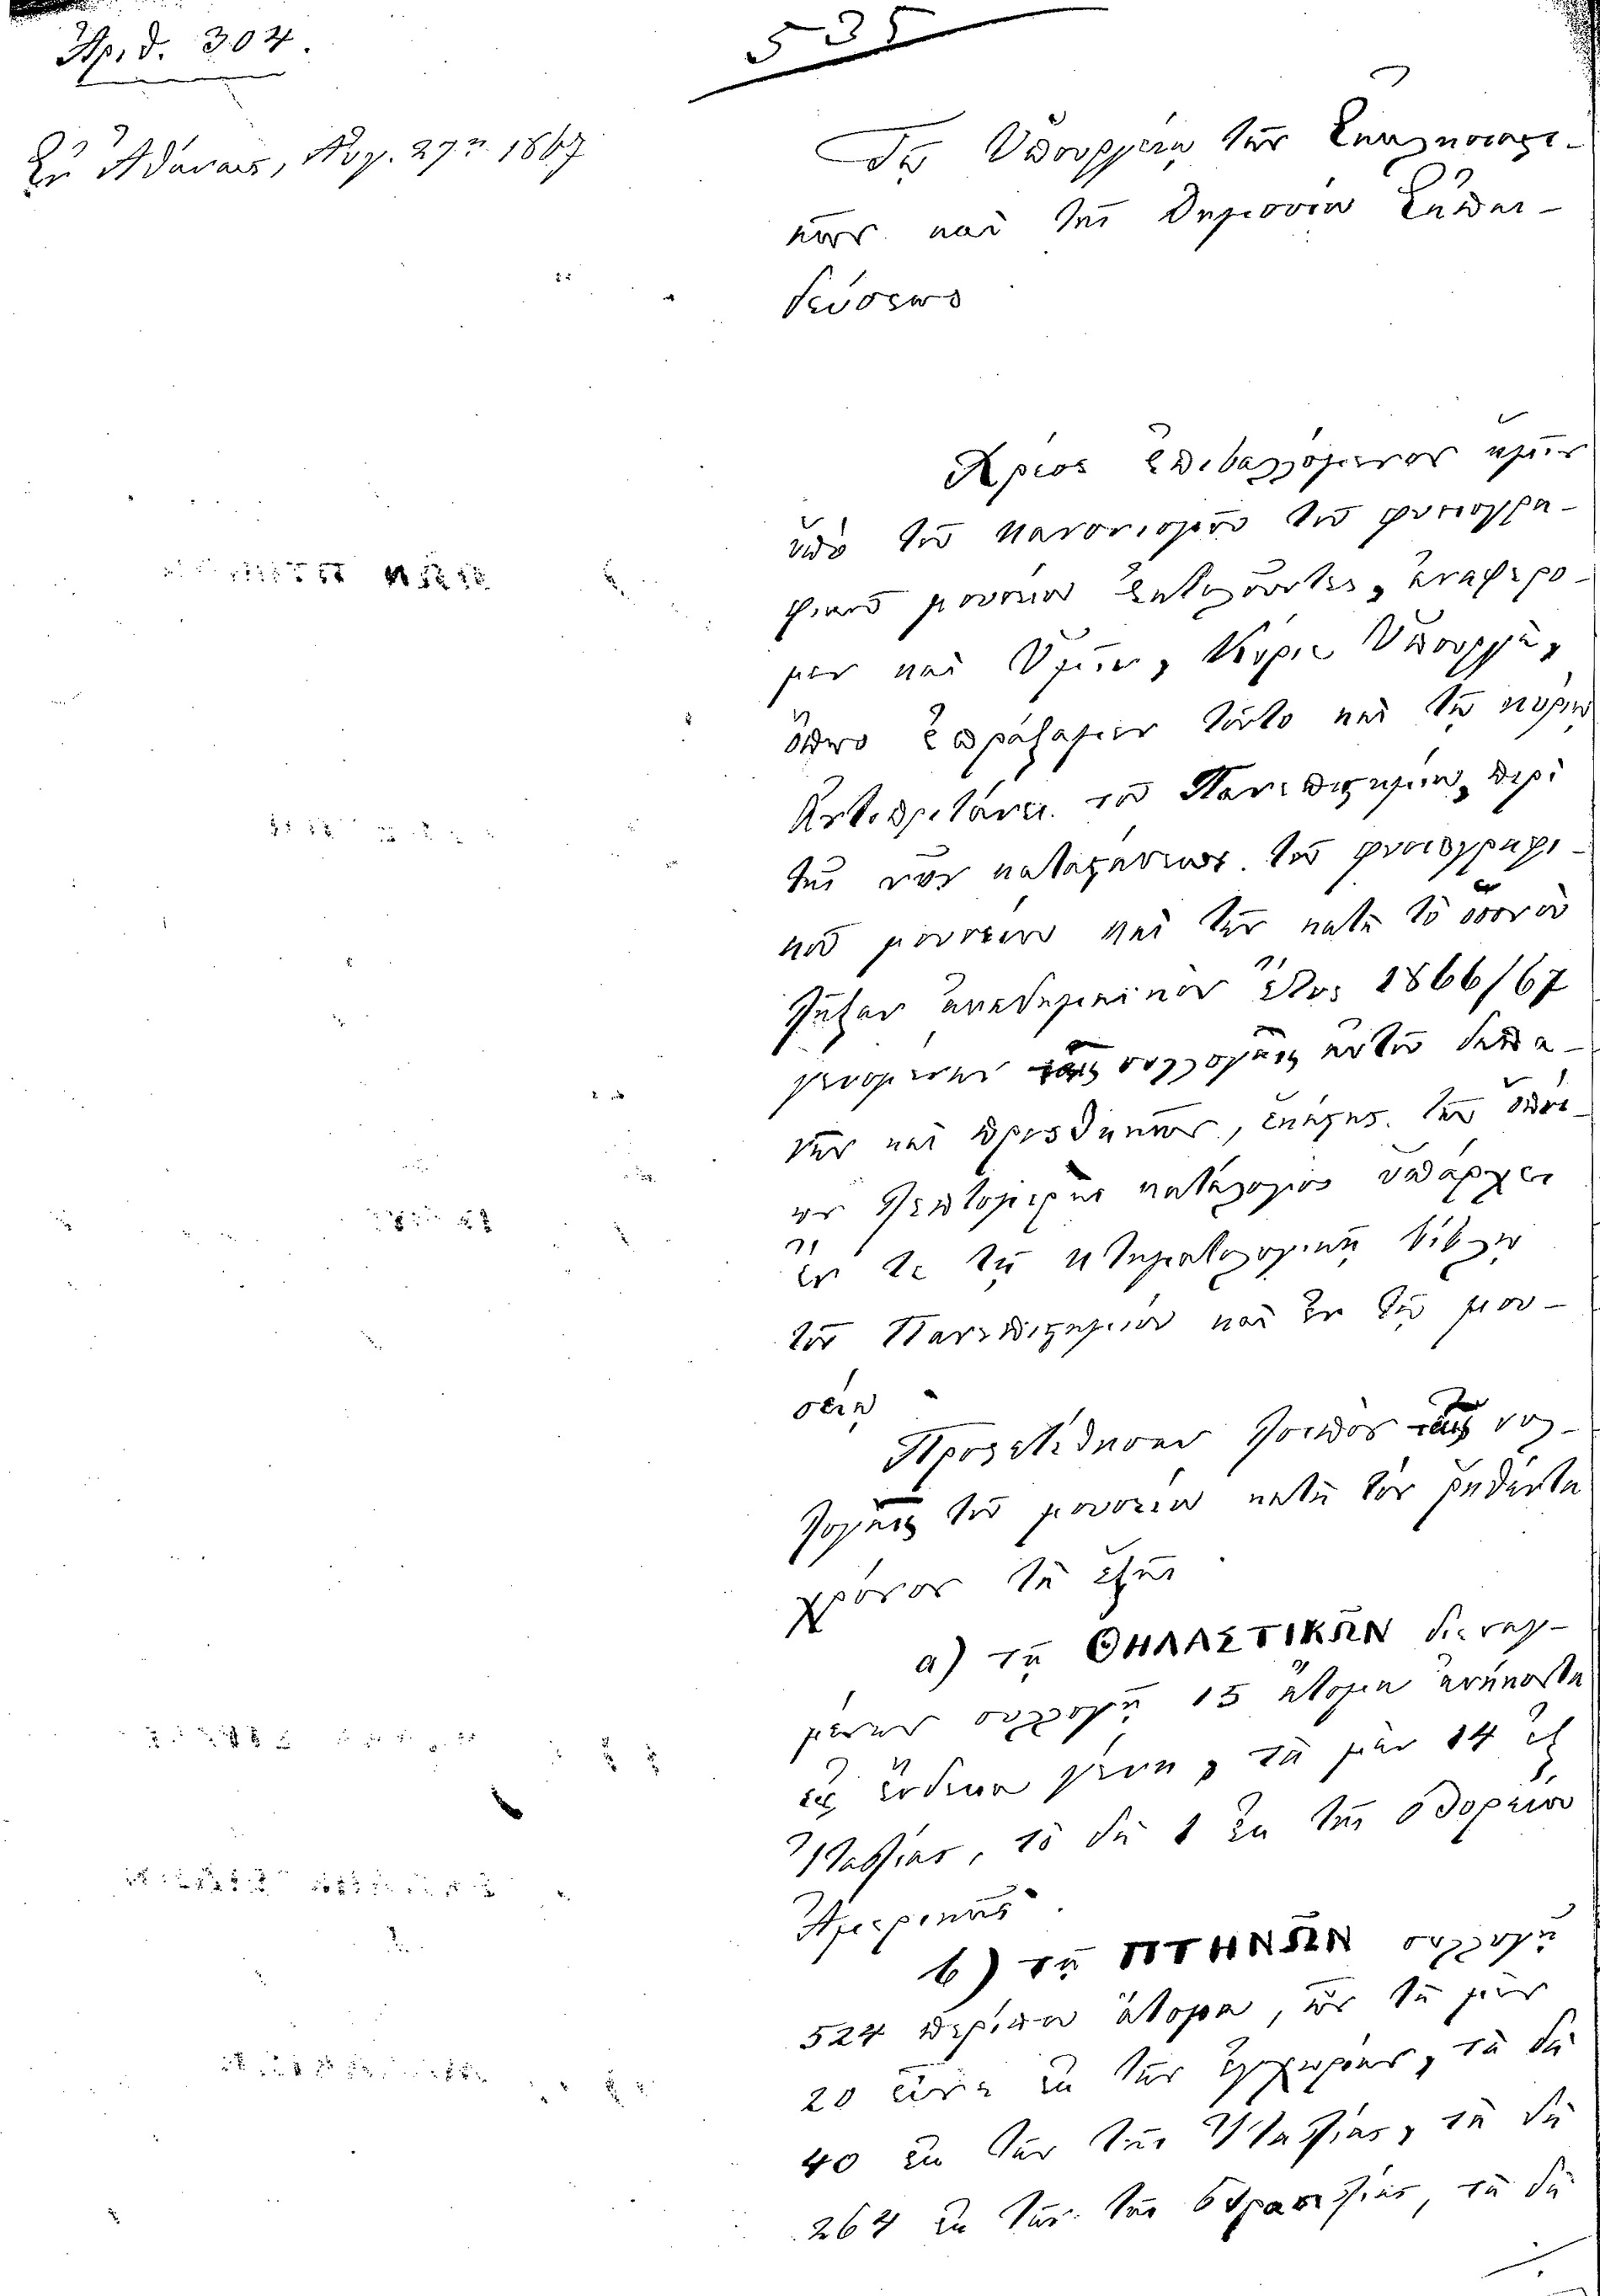 Ἀρ. δ. 304.
535
Ἐν Ἀθήναις, Αὐγ. 27η 1867
Τῷ Ὑπουργείῳ τῶν Ἐκκλησιαστι-
κῶν καὶ τῆς Δημοσίου Ἐκπαι-
δεύσεως
Χρέος ἐπιβαλλόμενον ἡμῖν
ὑπὸ τοῦ κανονισμοῦ τοῦ φυσιογρα-
φικοῦ μουσείου ἐκτελοῦντες, ἀναφέρο-
μεν καὶ Ὑμῖν, Κύριε Ὑπουργέ,
ὅπως ἐπράξαμεν τοῦτο καὶ τῷ κυρίῳ
Ἀντιπρυτάνει τοῦ Πανεπιστημίου, περὶ
τῆς νῦν καταστάσεως τοῦ φυσιογραφι-
κοῦ μουσείου καὶ τῶν κατὰ τὸ
λῆξαν ἀκαδημαϊκὸν ἔτος 1866/67
γενομένων ταῖς συλλογαῖς αὐτοῦ δαπα-
νῶν καὶ προσθηκῶν, ἑκάστης τῶν ὁποί-
ων λεπτομερὴς κατάλογος ὑπάρχει
ἔν τε τῇ κτηματολογικῇ βίβλῳ
τοῦ Πανεπιστημίου καὶ ἐν τῷ μου-
σείῳ.
Προσετέθησαν λοιπὸν ταῖς συλ-
λογαῖς τοῦ μουσείου κατὰ τὸν ῥηθέντα
χρόνον τὰ ἑξῆς
α) τῇ ΘΗΛΑΣΤΙΚΩΝ διατηρ-
μένων συλλογῇ 15 ἄτομα ἀνήκοντα
εἰς ἕνδεκα γένη, τὰ μὲν 14 ἐξ
Ἰταλίας, τὸ δὲ 1 ἐκ τῆς βορείου
Ἀμερικῆς.
β) τῇ ΠΤΗΝΩΝ συλλογῇ
524 περίπου ἄτομα, ὧν τὰ μὲν
20 εἶναι ἐκ τῶν ἐγχωρίων, τὰ δὲ
40 ἐκ τῶν τῆς Ἰταλίας, τὰ δὲ
264 ἐκ τῶν τῆς Βρασιλίας, τὰ δὲ